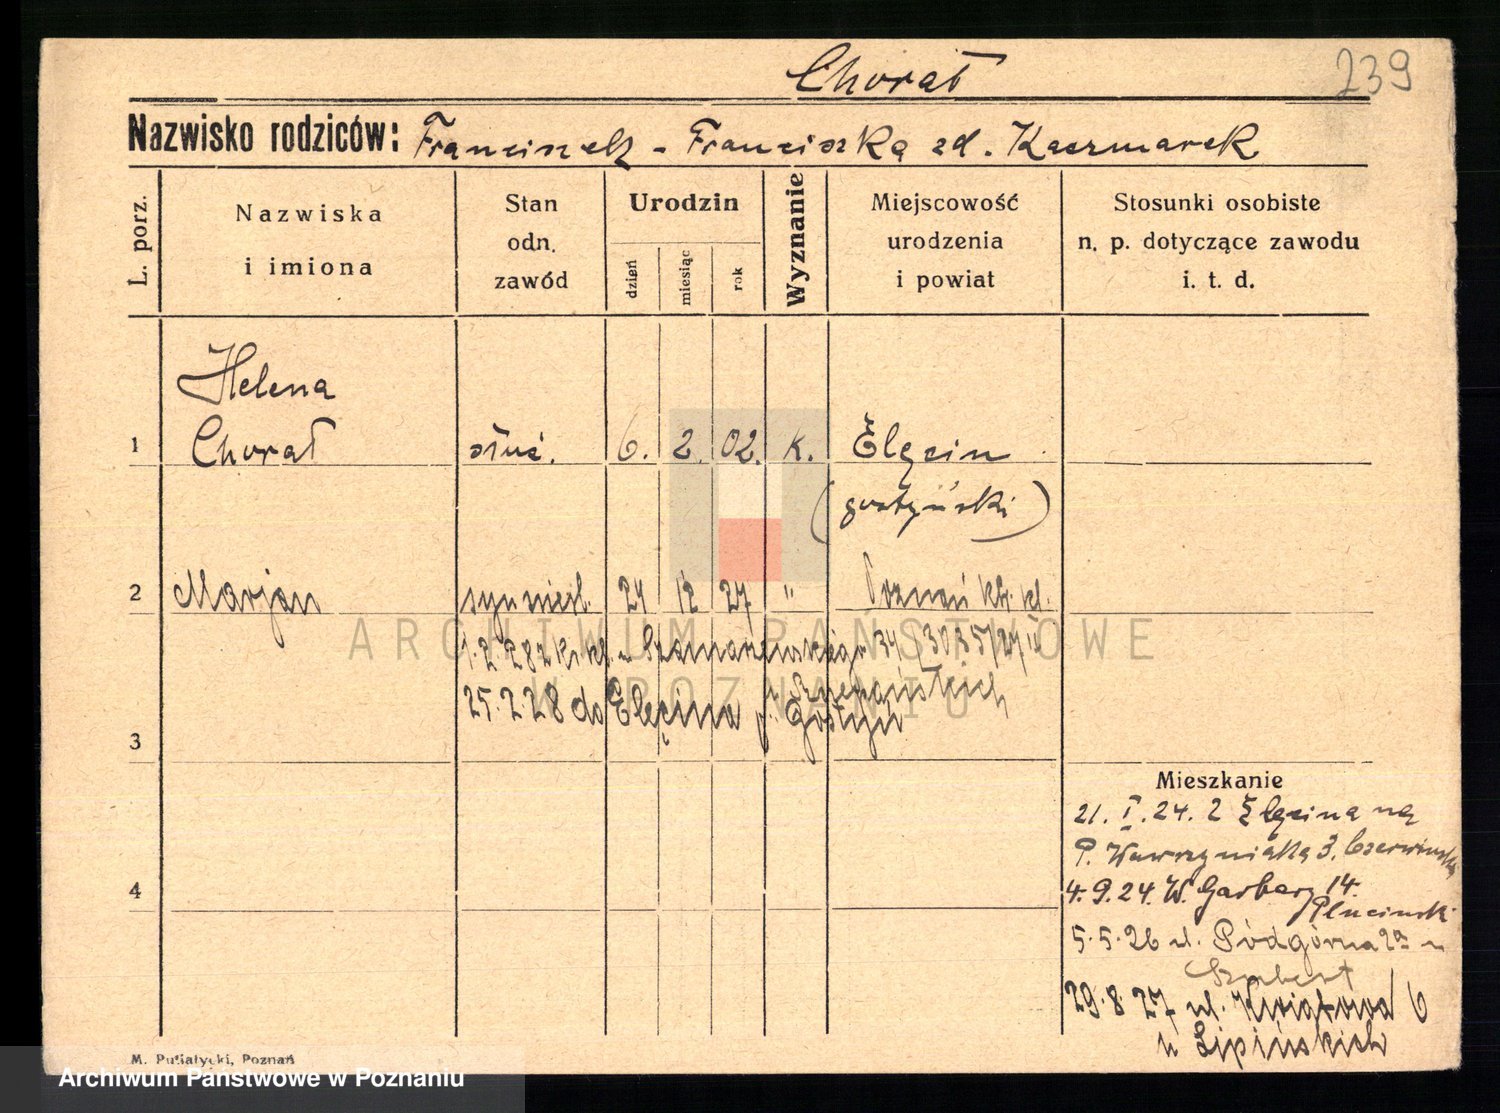 Chorał
239
Nazwisko rodziców: Franciszek - Franciszka zd. Kaczmarek
L. porz.
Nazwiska
i imiona
Stan
odn.
zawód
Urodzin
dzień
miesiąc
rok
Wyznanie
Miejscowość
urodzenia
i powiat
Stosunki osobiste
n. p. dotyczące zawodu
i. t. d.
Helena
1 Chorał służ. 6. 2. 02. k. Elęcin
(gostyński)
2 Marjan syn 24 12 27 " Poznań
ARCHIWUM PAŃSTWOWE
W POZNANIU
1.2.28 34/3035/27
25.2.28 do Elęcina p. Gostyń
3
Mieszkanie
21. I. 24. z Elęcina na
P. Wawrzyniaka 3.
4
4.9.24. W. Garbary 14.
Plucinski
5.5.26 ul. Podgórna 2a u
Szubert
29.8.27 ul. Kwiatowa 6
u Lipińskich
M. Putiatycki, Poznań
Archiwum Państwowe w Poznaniu